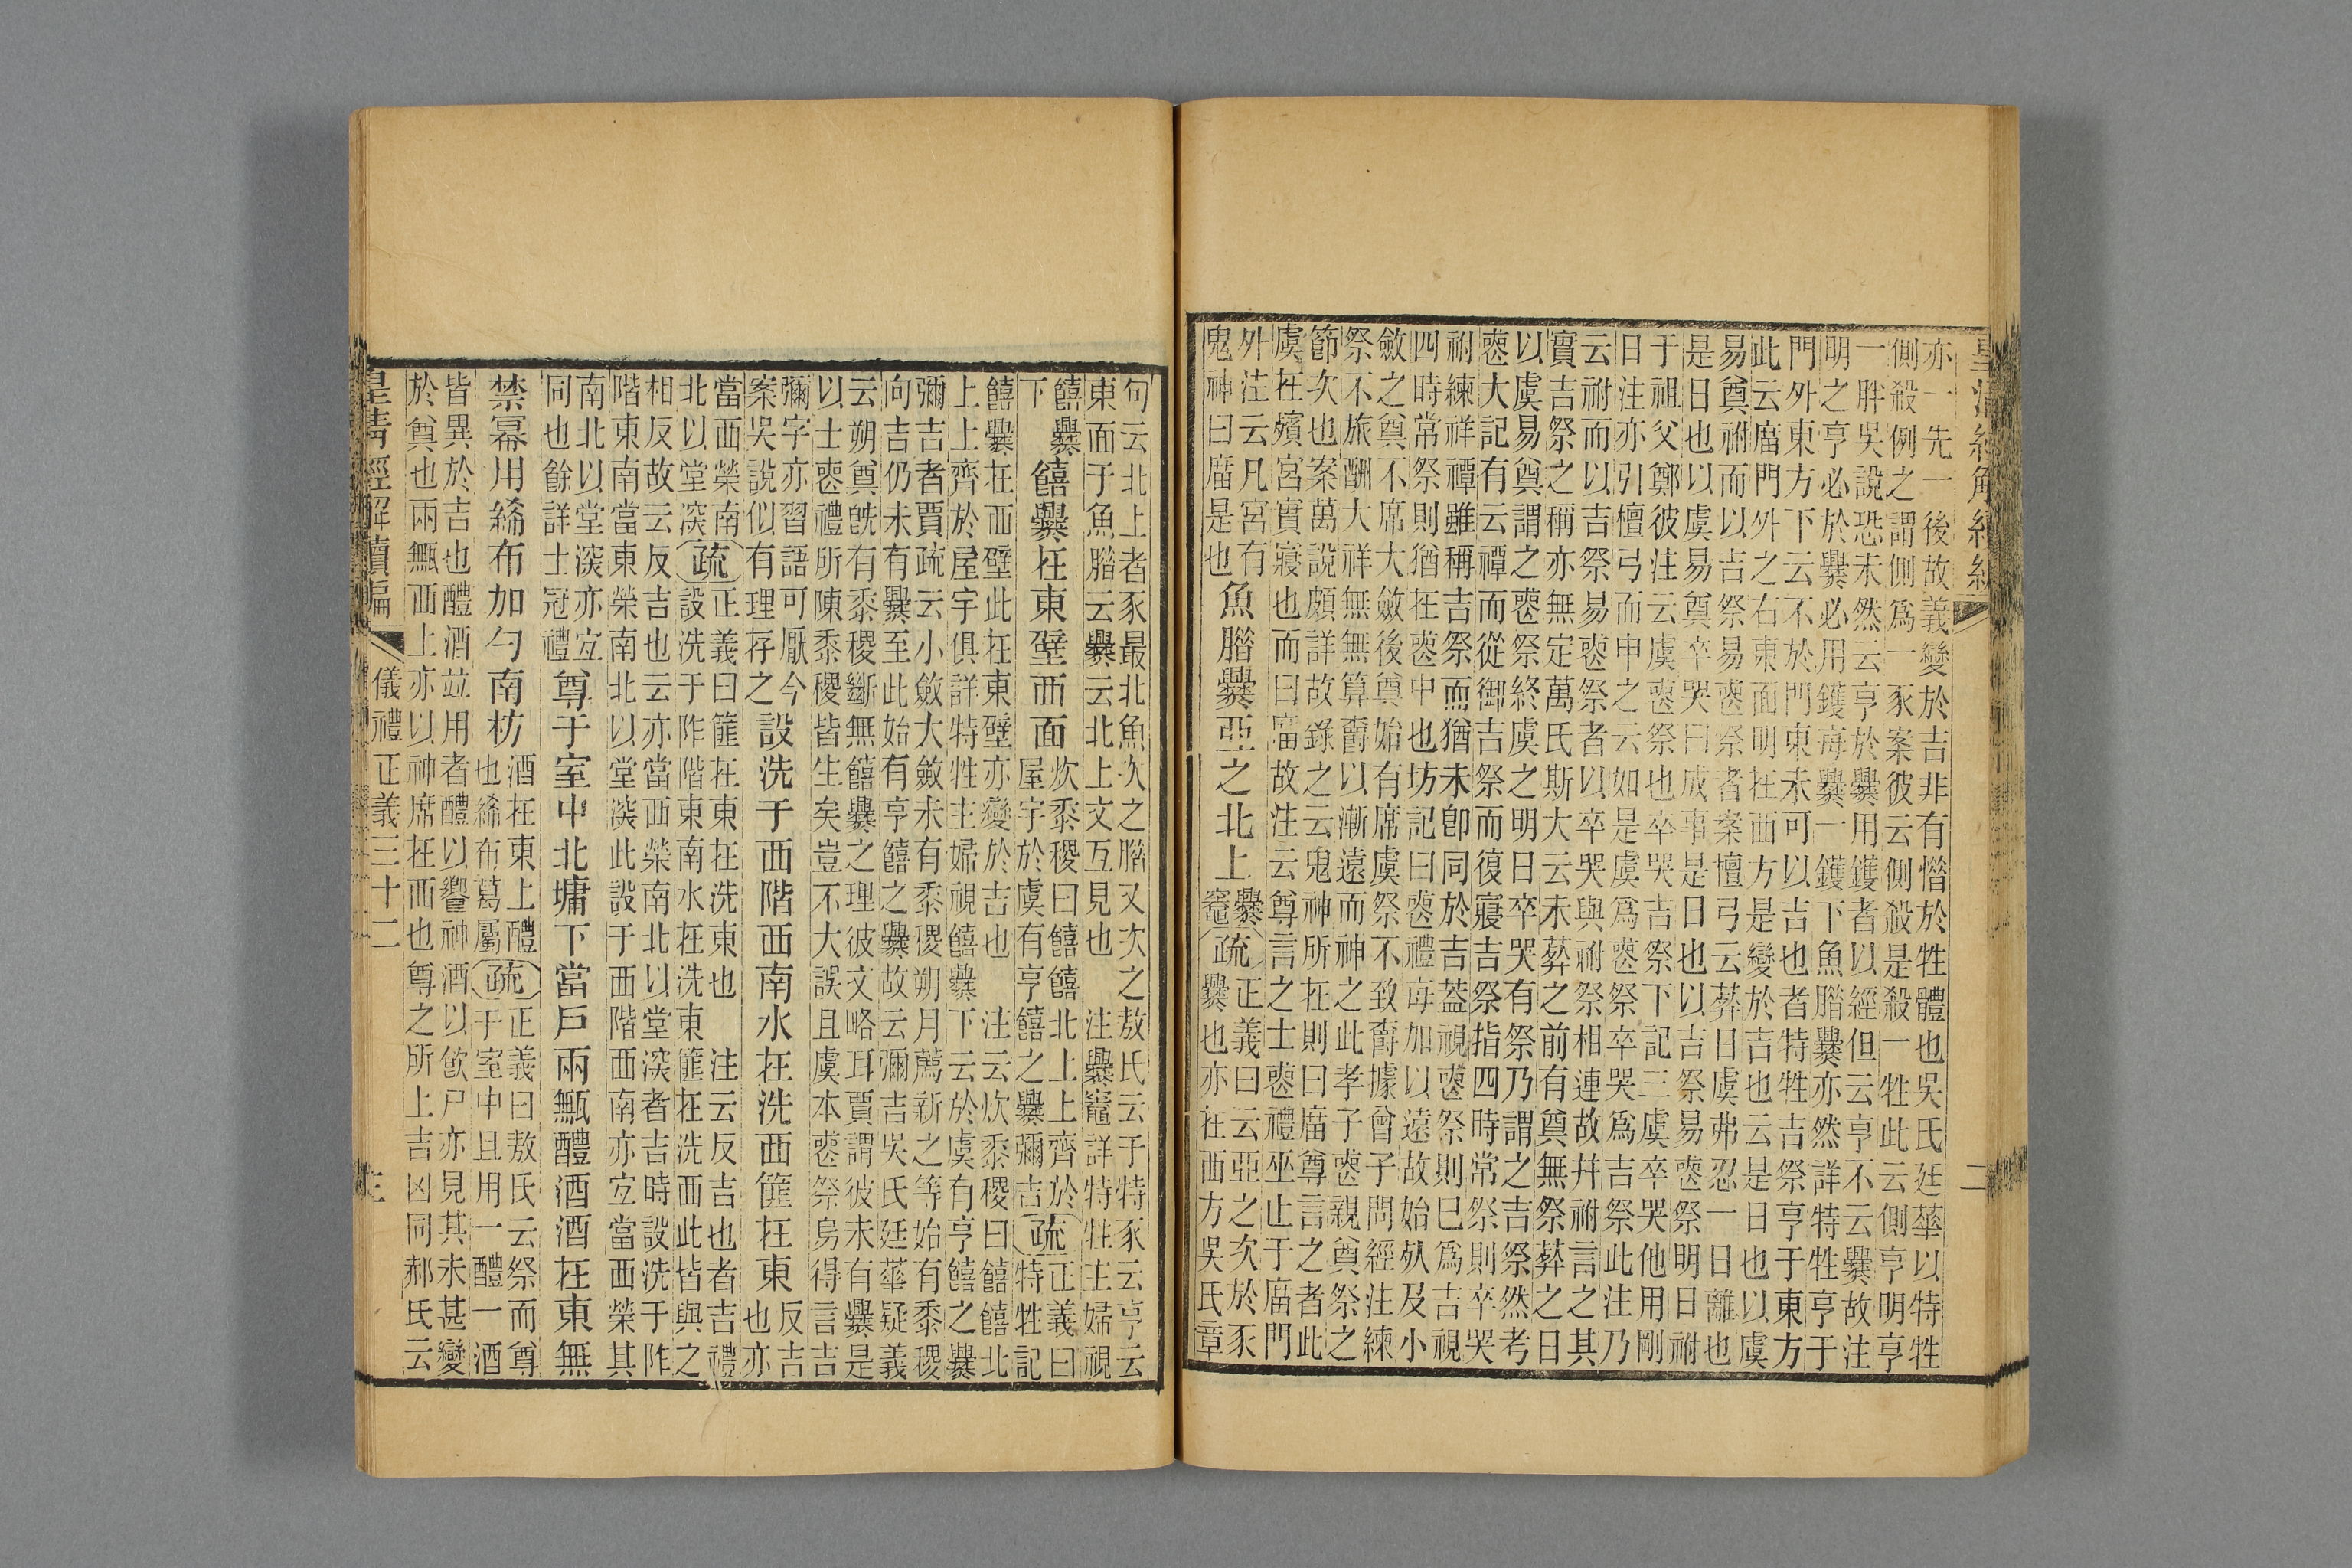 亦一先一後故義變於吉非有憯於牲體也吳氏廷華以特牲
側殺例之謂側爲一豕案彼云側殺是殺一牲此云側亨明亨
一胖吳說恐未然云亨於爨用鑊者以經但云亨不云爨故注
明之亨必於爨必用鑊每爨一鑊下魚腊爨亦然詳特牲亨于
門外東方下云不於門東未可以吉也者特牲吉祭亨于東方
此云庿門外之右東面明在西方是變於吉也云是日也以虞
易奠祔而以吉祭易喪祭者案檀弓云葬日虞弗忍一日離也
是日也以虞易奠卒哭曰成事是日也以吉祭易喪祭明日祔
于祖父鄭彼注云虞喪祭也卒哭吉祭下記三虞卒哭他用剛
日注亦引檀弓而申之云如是虞爲喪祭卒哭爲吉祭此注乃
云祔而以吉祭易喪祭者以卒哭與祔祭相連故并祔言之其
實吉祭之稱亦無定萬氏斯大云未葬之前有奠無祭葬之日
以虞易奠謂之喪祭終虞之明日卒哭有祭乃謂之吉祭然考
喪大記有云禫而從御吉祭而復寢吉祭指四時常祭則卒哭
祔練祥禫雖稱吉祭而猶未卽同於吉蓋視喪祭則巳爲吉視
四時常祭則猶在喪中也坊記曰喪禮每加以遠故始㱔及小
斂之奠不席大斂後奠始有席虞祭不致爵據曾子問經注練
祭不旅酬大祥無無算爵以漸遠而神之此孝子喪親奠祭之
節次也案萬說頗詳故錄之云鬼神所在則曰庿尊言之者此
虞在殯宮實寢也而曰庿故注云尊言之士喪禮巫止于庿門
外注云凡宮有鬼神曰庿是也魚腊爨亞之北上爨竈疏正義曰云亞之次於豕
爨也亦在西方吳氏章
句云北上者豕最北魚次之腊又次之敖氏云于特豕云亨云
東面于魚腊云爨云北上文互見也　注爨竈詳特牲主婦視
饎爨下饎爨在東壁西面炊黍稷曰饎饎北上上齊於屋宇於虞有亨饎之爨彌吉疏正義曰特牲記
饎爨在西壁此在東壁亦變於吉也　注云炊黍稷曰饎饎北
上上齊於屋宇俱詳特牲主婦視饎爨下云於虞有亨饎之爨
彌吉者賈疏云小斂大斂未有黍稷朔月薦新之等始有黍稷
向吉仍未有爨至此始有亨饎之爨故云彌吉吳氏廷華疑義
云朔奠旣有黍稷斷無饎爨之理彼文略耳賈謂彼未有爨是
以士喪禮所陳黍稷皆生矣豈不大誤且虞本喪祭烏得言吉
彌字亦習語可厭今案吳說似有理存之設洗于西階西南水在洗西篚在東反吉也亦
當西榮南北以堂深疏正義曰篚在東在洗東也　注云反吉也者吉禮
設洗于阼階東南水在洗東　篚在洗西此皆與之
相反故云反吉也云亦當西榮南北以堂深者吉時設洗于阼
階東南當東榮南北以堂深此設于西階西南亦宜當西榮其
南北以堂深亦宜同也餘詳士冠禮尊于室中北墉下當戶兩甒醴酒酒在東無
禁冪用綌布加勺南枋酒在東上醴也綌布葛屬疏正義曰敖氏云祭而尊
于室中且用一醴一酒
皆異於吉也醴酒竝用者醴以饗神酒以飮尸亦見其未甚變
於奠也兩甒西上亦以神席在西也尊之所上吉凶同郝氏云
皇淸經解續編
儀禮正義三十二